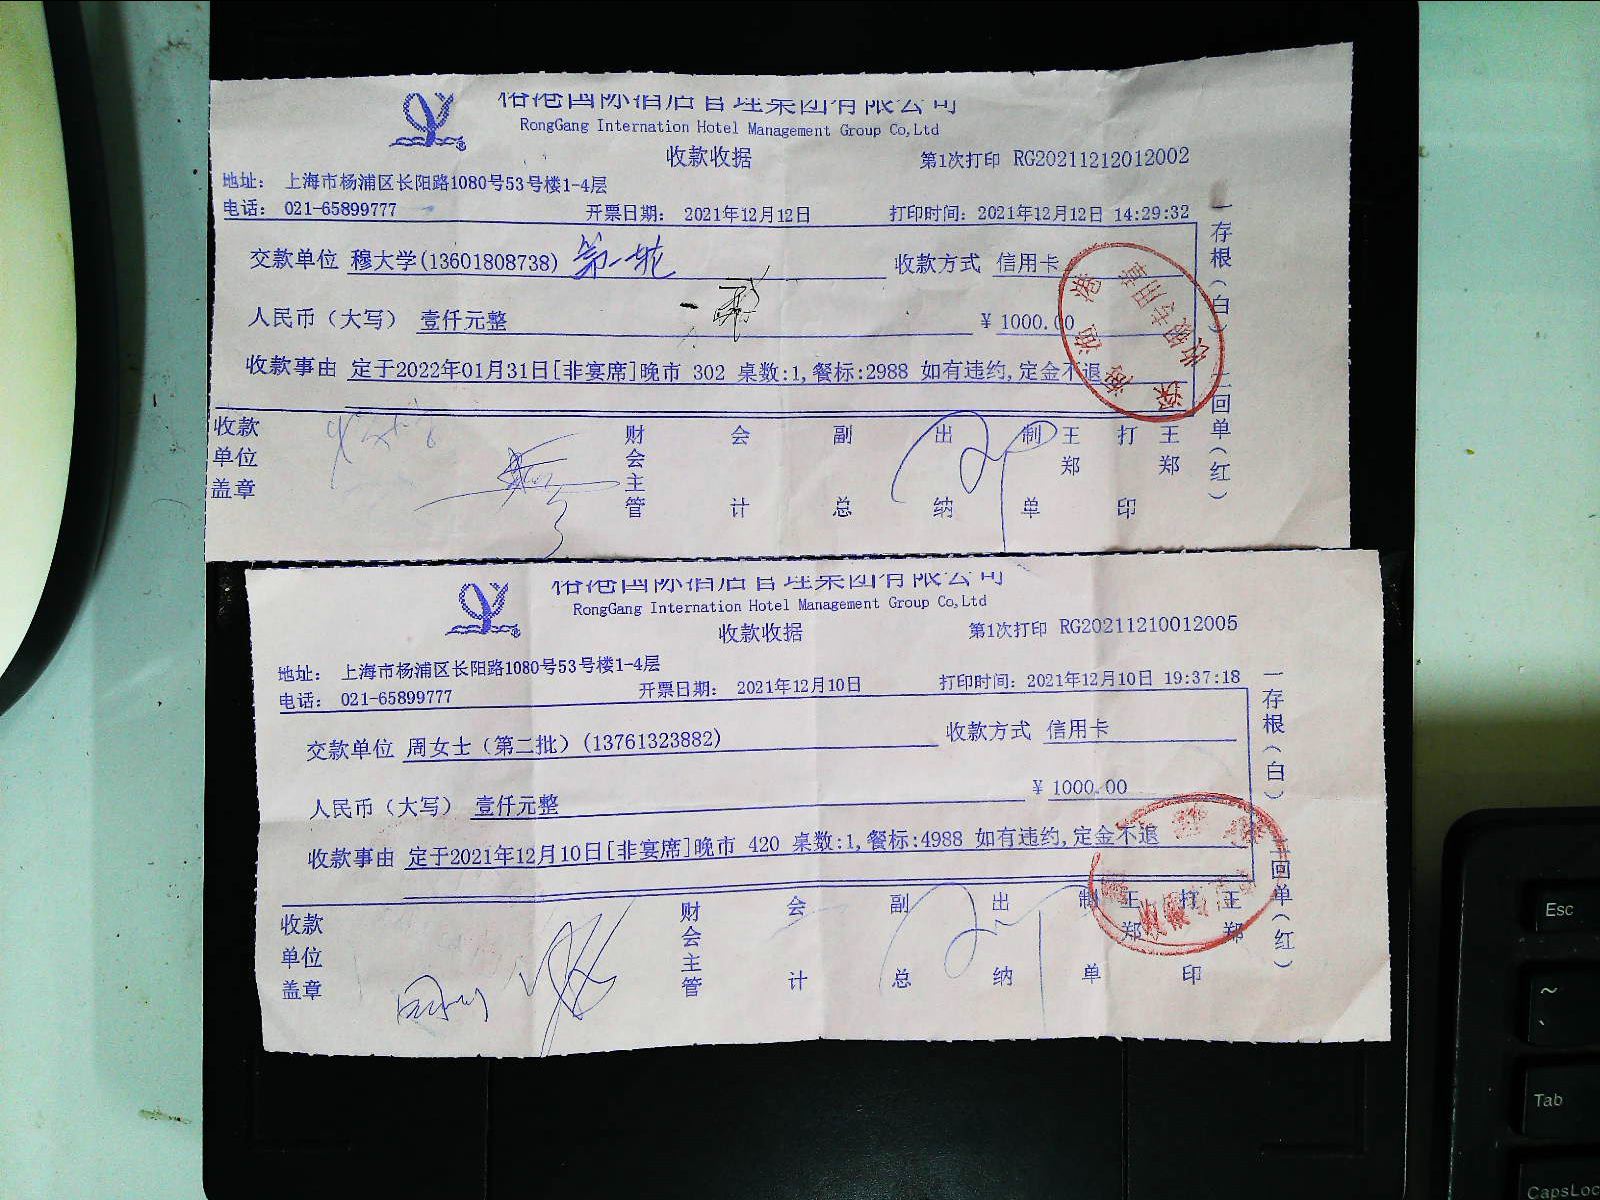 RongGang Internation Hotel Management Group Co,Ltd
收款收据 第1次打印 RG20211212012002
地址: 上海市杨浦区长阳路1080号53号楼1-4层
电话: 021-65899777 开票日期: 2021年12月12日 打印时间: 2021年12月12日 14:29:32
交款单位 穆大学(13601808738) 第一轮 收款方式 信用卡
人民币（大写） 壹仟元整 ¥ 1000.00
收款事由 定于2022年01月31日[非宴席]晚市 302 桌数:1,餐标:2988 如有违约,定金不退
收款单位盖章 财会主管 会计 副总 出纳 制单 王郑 打印 王郑
一存根(白) 二回单(红)
国际酒店管理集团有限公司
RongGang Internation Hotel Management Group Co,Ltd
收款收据 第1次打印 RG20211210012005
地址: 上海市杨浦区长阳路1080号53号楼1-4层
电话: 021-65899777 开票日期: 2021年12月10日 打印时间: 2021年12月10日 19:37:18
交款单位 周女士（第二批）(13761323882) 收款方式 信用卡
人民币（大写） 壹仟元整 ¥ 1000.00
收款事由 定于2021年12月10日[非宴席]晚市 420 桌数:1,餐标:4988 如有违约,定金不退
收款单位盖章 财会主管 会计 副总 出纳 制单 王郑 打印 王郑
一存根(白) 二回单(红)
Esc
~
`
Tab
CapsLoc